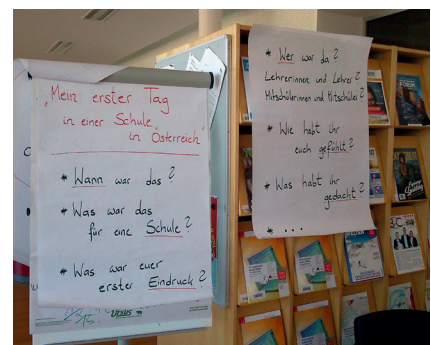 „Mein erster Tag
in einer Schule
in Österreich"
* Wann war das?
* Was war das
für eine Schule?
* Was war euer
erster Eindruck?
* Wer war da?
Lehrerinnen und Lehrer?
Mitschülerinnen und Mitschüler?
* Wie habt ihr
euch gefühlt?
* Was habt ihr
gedacht?
* ...
FORUM